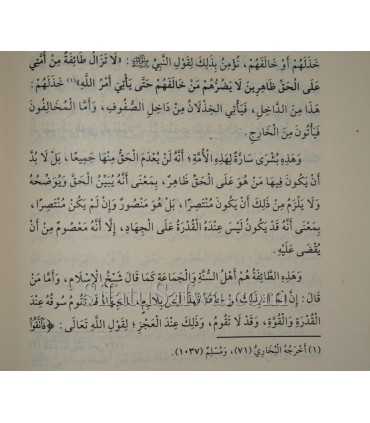 خَذَلَهُمْ أَوْ خَالَفَهُمْ، نُؤْمِنُ بِذَلِكَ لِقَوْلِ النَّبِيِّ ﷺ: «لَا تَزَالُ طَائِفَةٌ مِنْ أُمَّتِي
عَلَى الْحَقِّ ظَاهِرِينَ لَا يَضُرُّهُمْ مَنْ خَالَفَهُمْ حَتَّى يَأْتِيَ أَمْرُ اللَّهِ»(١) خَذَلَهُمْ:
هَذَا مِنَ الدَّاخِلِ، فَيَأْتِي الْخِذْلَانُ مِنْ دَاخِلِ الصُّفُوفِ، وَأَمَّا الْمُخَالِفُونَ
فَيَأْتُونَ مِنَ الْخَارِجِ.
وَهَذِهِ بُشْرَى سَارَّةٌ لِهَذِهِ الْأُمَّةِ؛ أَنَّهُ لَنْ يُعْدَمَ الْحَقُّ مِنْهَا جَمِيعًا، بَلْ لَا بُدَّ
أَنْ يَكُونَ فِيهَا مَنْ هُوَ عَلَى الْحَقِّ ظَاهِرٌ، بِمَعْنَى أَنَّهُ يُبَيِّنُ الْحَقَّ وَيُوَضِّحُهُ
وَلَا يَلْزَمُ مِنْ ذَلِكَ أَنْ يَكُونَ مُنْتَصِرًا، بَلْ هُوَ مَنْصُورٌ وَإِنْ لَمْ يَكُنْ مُنْتَصِرًا،
بِمَعْنَى أَنَّهُ قَدْ يَكُونُ لَيْسَ عِنْدَهُ الْقُدْرَةُ عَلَى الْجِهَادِ، إِلَّا أَنَّهُ مَعْصُومٌ مِنْ أَنْ
يُقْضَى عَلَيْهِ.
وَهَذِهِ الطَّائِفَةُ هُمْ أَهْلُ السُّنَّةِ وَالْجَمَاعَةِ كَمَا قَالَ شَيْخُ الْإِسْلَامِ، وَأَمَّا مَنْ
قَالَ: إِنَّ الْجِهَادُ قَدْ تَقُومُ سُوقُهُ عِنْدَ
الْقُدْرَةِ وَالْقُوَّةِ، وَقَدْ لَا تَقُومُ، وَذَلِكَ عِنْدَ الْعَجْزِ؛ لِقَوْلِ اللَّهِ تَعَالَى: ﴿فَاتَّقُوا
(١) أَخْرَجَهُ الْبُخَارِيُّ (٧١)، وَمُسْلِمٌ (١٠٣٧).